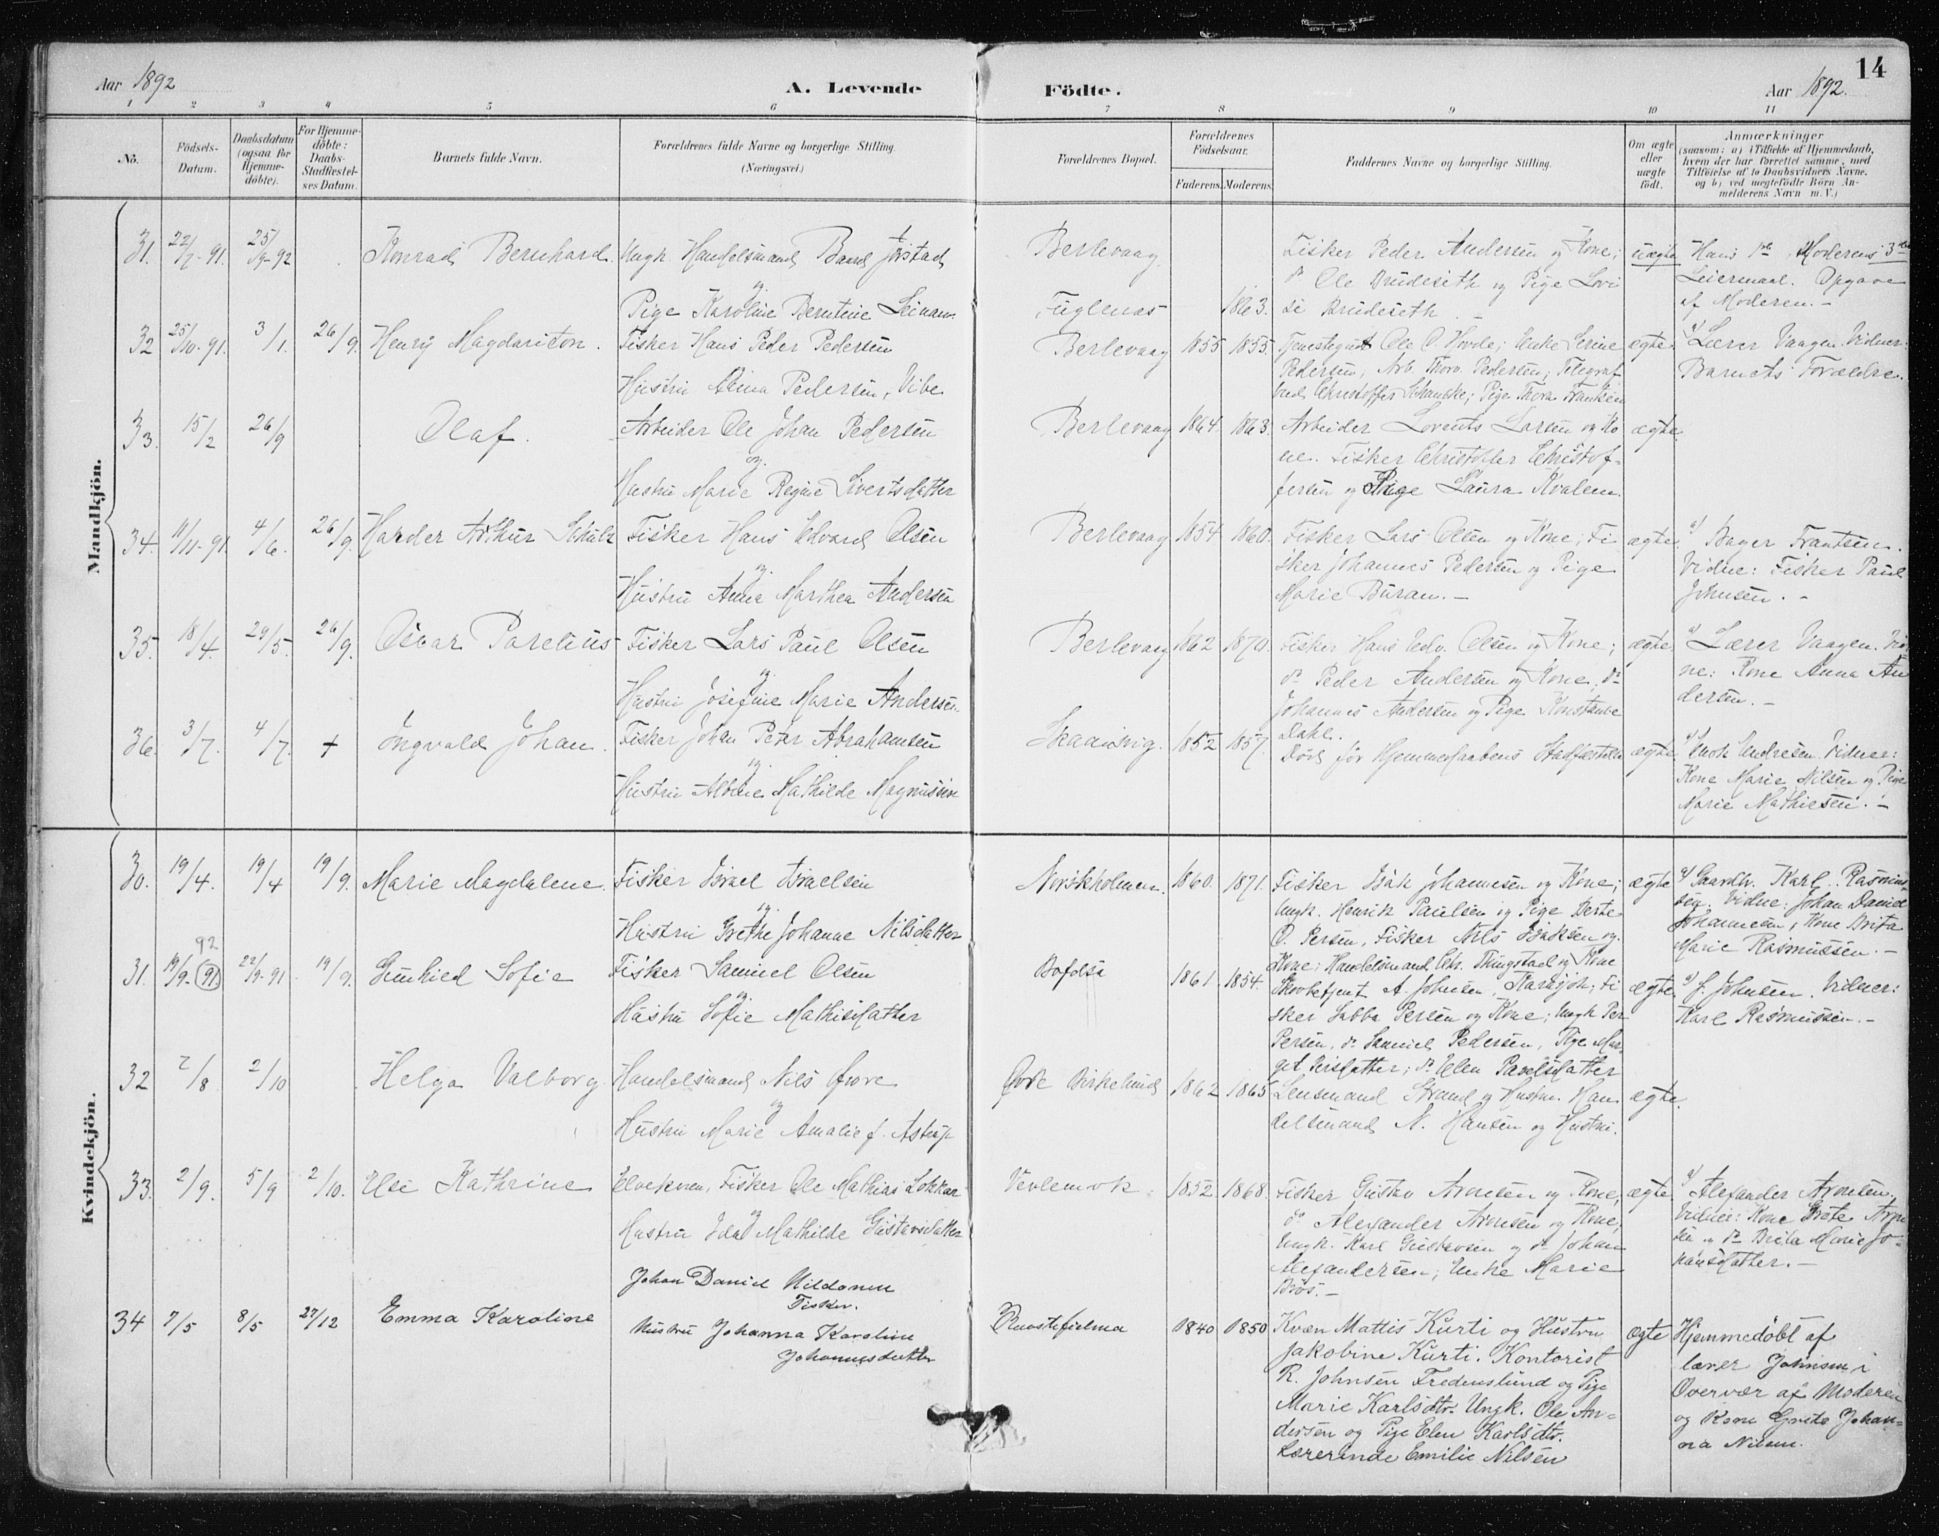 Aar 1892
A. Levende Födte.
Aar 1892.
14
1 2 3 4 5 6 7 8 9 10 11
No.
Födsels-Datum.
Daabsdatum (ogsaa for Hjemme-döbte).
For Hjemme-döbte: Daabs-Stadfæstel-ses Datum.
Barnets fulde Navn.
Forældrenes fulde Navne og borgerlige Stilling (Næringsvei)
Forældrenes Bopæl.
Forældrenes Födselsaar.
Faderens. Moderens.
Faddernes Navne og borgerlige Stilling.
Om ægte eller uægte födt.
Anmærkninger
(saasom: a) i Tilfælde af Hjemmedaab,
hvem der har forrettet samme, med
Tilföielse af to Daabsvidners Navne.
og b) ved uægtefödte Börn An-
melderens Navn m. V.)
Mandkjön.
31. 22/7-91. 25/9-92 Konrad Bernhard. Ungk. Handelsmand Baard Jørstad
og
Pige Karoline Berntine Leinan
Berlevaag
Fuglenæs 1863.
Fisker Peder Andersen og Kone;
do Ole Brudeseth og Pige Lovi
se Brudeseth.
uægte
Hans 1ste Moderens 3die
Leiermaal. Opgave
af Moderen. -
32 25/10-91. 3/1. 26/9. Henry Magdariton. Fisker Hans Peder Pedersen
Hustru Anna Pedersen, Vibe
Berlevaag 1855 1855.
Tjenestegut Ole O. Hovde; Enke Serine
Pedersen, Arb. Thorv. Pedersen; Telegraf
bud Christoffer Schancke; Pige Thora Frantsen
ægte
a) Lærer Vaagen. Vidner:
Barnets Forældre.
33. 15/2 26/9 Olaf. Arbeider Ole Johan Pedersen
og
Hustru Marie Regine Sivertsdatter
Berlevaag 1864. 1863.
Arbeider Lorents Larsen og Ko
ne. Fisker Christoffer Christof-
fersen og Pige Laura Kvalen.
ægte
34. 11/11-91. 4/6. 26/9. Harder Arthur Schulz Fisker Hans Edvard Olsen
og
Hustru Anna Marthea Andersen
Berlevaag 1854 1860.
Fisker Lars Olsen og Kone; Fi
sker Johannes Pedersen og Pige
Marie Buran. -
ægte
a) Bager Frantsen.
Vidne: Fisker Paul
Johnsen. -
35. 18/4. 29/5. 26/9. Oscar Parelius Fisker Lars Paul Olsen
og
Hustru Josefine Marie Andersen
Berlevaag 1862 1870.
Fisker Hans Edv. Olsen og Kone;
do Peder Andersen og Kone, do
Johannes Andersen og Pige Konstanse
Dahl.
ægte
a) Lærer Vaagen. Vid
ne: Kone Anna An
dersen. -
36. 3/7. 4/7. + Ingvald Johan. Fisker Johan Peter Abrahamsen
og
Hustru Albine Mathilde Magnussen
Skaanvig. 1852 1857.
Død før Hjemmedaabens Stadfæstelse
ægte
a) Enok Andresen. Vidner:
Kone Marie Nilsen og Pige
Marie Mathiesen. -
Kvindekjön.
30. 19/4. 19/4 19/9. Marie Magdalene. Fisker Israel Israelsen
og
Hustru Grethe Johanne Nilsdatter
Norskholmen 1860. 1871.
Fisker Isak Johannesen og Kone;
Ungk. Henrik Paulsen og Pige Berte
O. Persen, Fisker Nils Isaksen og
Kone; Handelsmand Chr. Thingstad og Kone
ægte
a) Gaardb. Karl Rasmus-
sen. Vidne: Johan Daniel
Johannesen, Kone Brita
Marie Rasmussen. -
31. 19/9-92 (91) 22/9-91 19/9. Gunhild Sofie Fisker Samuel Olsen
og
Hustru Sofie Mathisdatter
1861 1854.
A. Johnsen, Karasjok; Fi
sker Sabba Persen og Kone; Ungk Per
Persen, do Samuel Pedersen, Pige Mar-
get Persdatter; do Elen Paulsdatter
ægte
a) J. Johnsen. Vidner:
Karl Rasmussen. -
32 2/8 2/10 Helga Valborg Handelsmand Nils Øwre
og
Hustru Marie Amalie f. Astrup
Birkelund 1862 1865
Lensmand Strand og Hustru. Han
delsmand N. Hansen og Hustru.
ægte.
33. 2/9. 5/9 2/10. Elsi Kathrine Elvekven, Fisker Ole Mathias Lokkar
og
Hustru Ida Mathilde Gustavsdatter
1852 1868.
Fisker Gustav Aronsen og Kone,
do Alexander Aronsen og Kone,
Ungk. Karl Gustavsen og do Johan
Alexandersen; Enke Marie
Bros. -
ægte
a) Alexander Aronsen,
Vidner: Kone Grete Aron
sen, do Brita Marie Jo-
hansdatter. -
34 7/5 8/5 27/12 Emma Karoline
Johan Daniel Niidonen
Fisker.
Hustru Johanna Karoline
Johannesdatter
Ruostefielma 1840 1850
Kvæn Mattis Kurti og Hustru
Jakobine Kurti. Kontorist
R. Johnsen Fredenslund og Pige
Marie Karlsdtr. Ungk. Ole An-
dersen og Pige Elen Karlsdtr.
Lærerinde Emilie Nilsen
ægte
Hjemmedøbt af
lærer Johnsen i
Overvær af Moderen
og Kone Grete Johan-
na Nilsen.